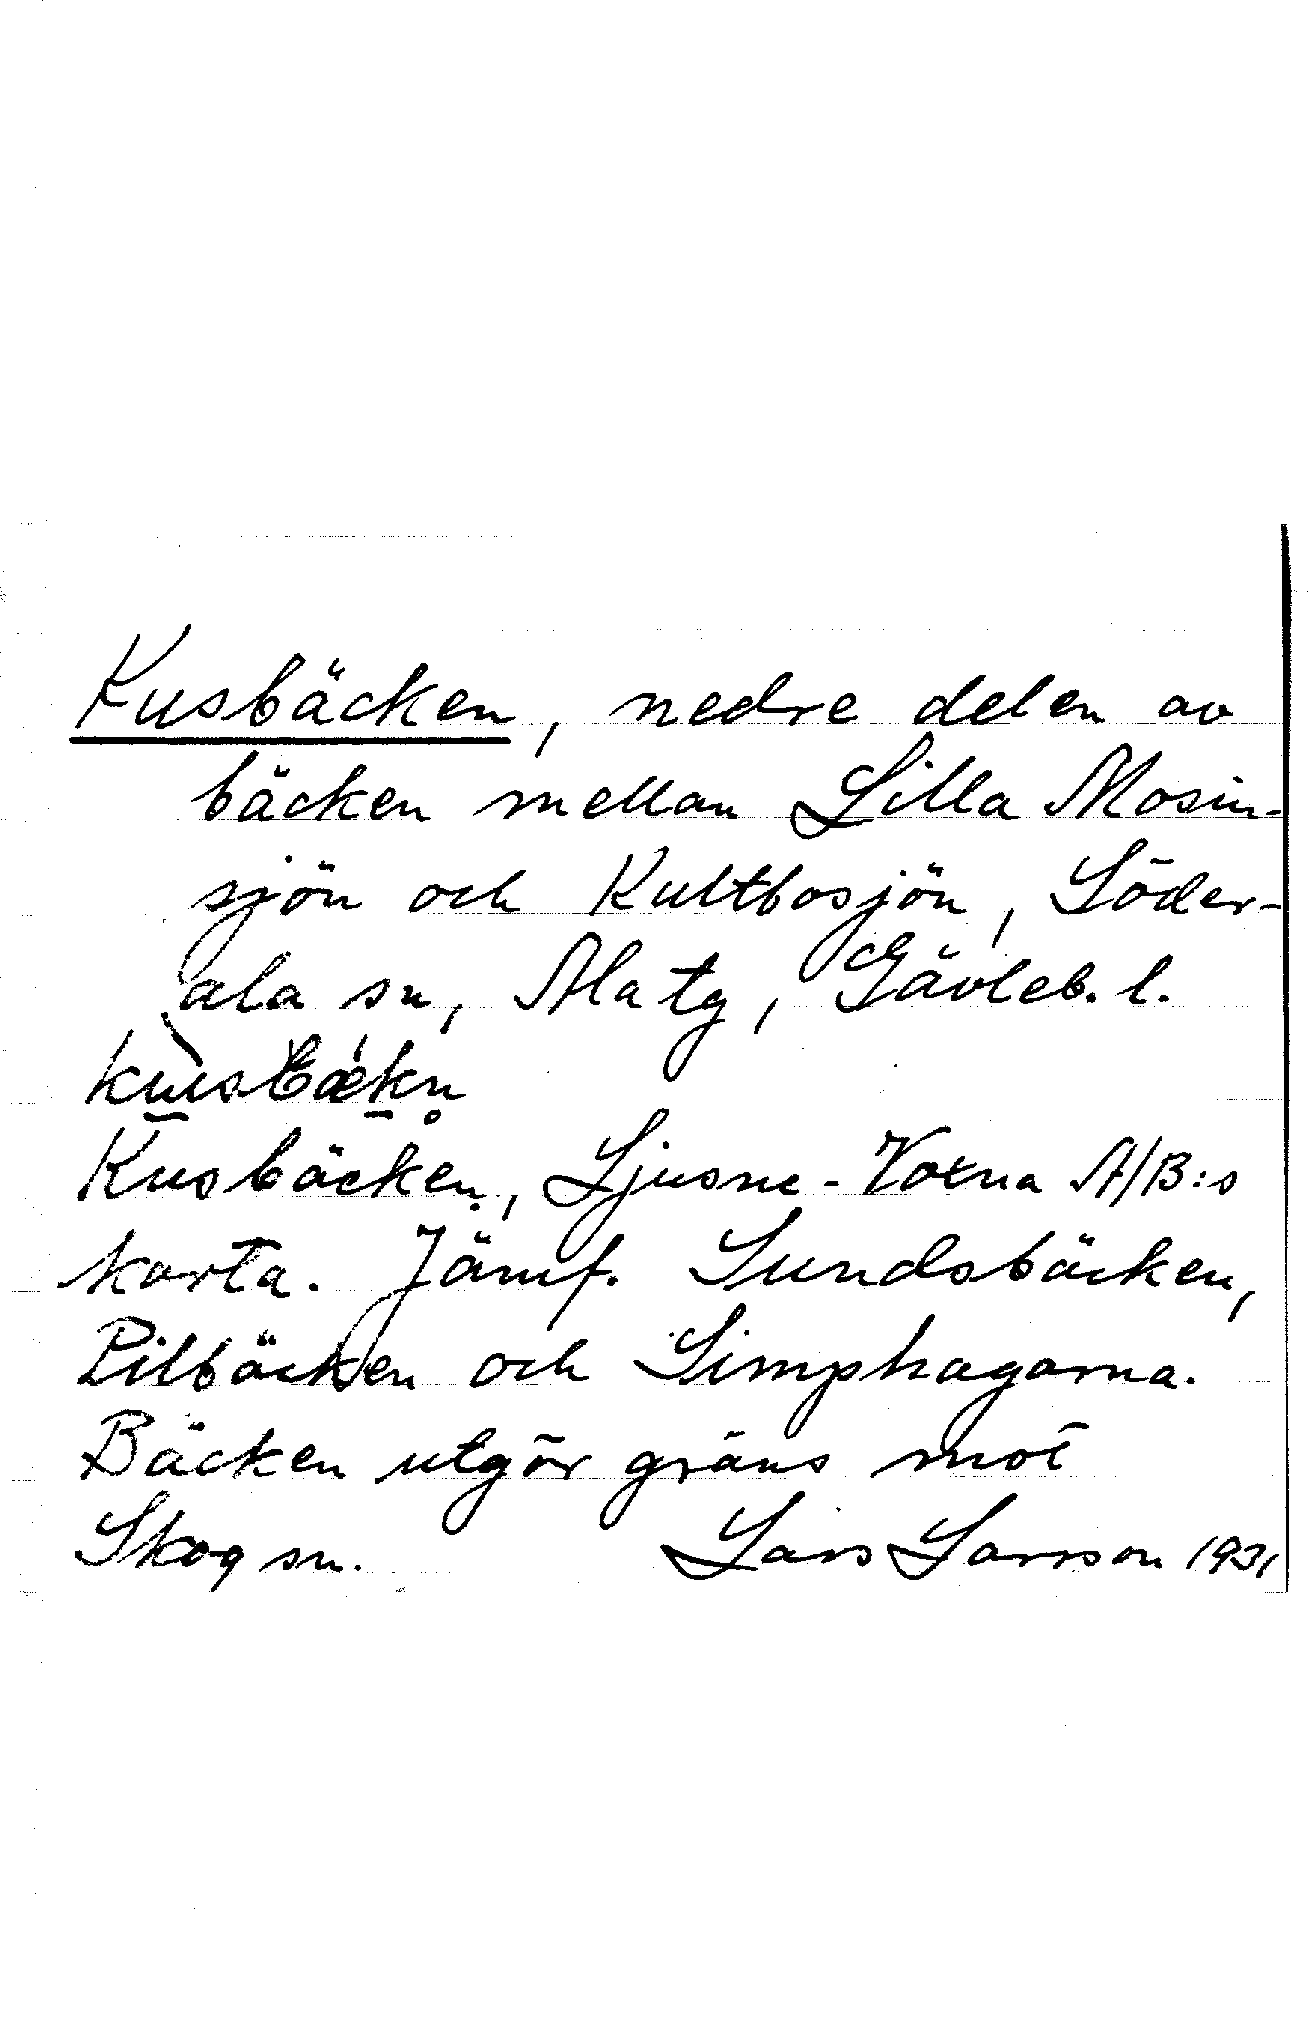 Kusbäcken, nedre delen av
bäcken mellan Lilla Mosin-
sjön och Kultbosjön, Söder-
ala sn, Ala tg, Gävleb. l.
Kusbäcken, Ljusne-Voxna A/B:s
karta. Jämf. Sundsbäcken,
Pilbäcken och Simphagarna.
Bäcken utgör gräns mot
Skog sn. Lars Larsson 1931